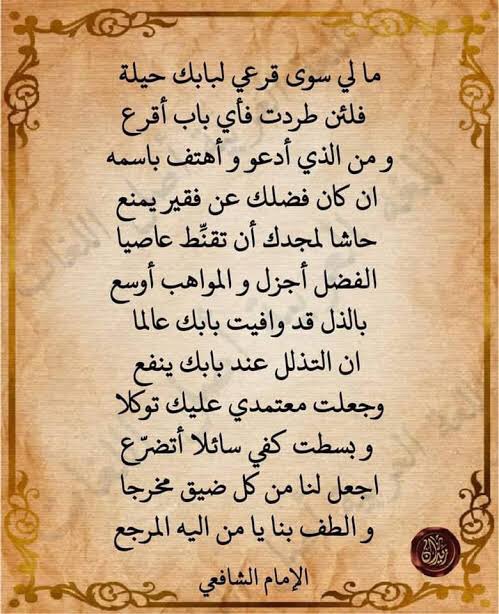 ما لي سوى قرعي لبابك حيلة
فلئن طردت فأي باب أقرع
و من الذي أدعو و أهتف باسمه
ان كان فضلك عن فقير يمنع
حاشا لمجدك أن تقنِّط عاصيا
الفضل أجزل و المواهب أوسع
بالذل قد وافيت بابك عالما
ان التذلل عند بابك ينفع
وجعلت معتمدي عليك توكلا
و بسطت كفي سائلا أتضرّع
اجعل لنا من كل ضيق مخرجا
و الطف بنا يا من اليه المرجع
الإمام الشافعي